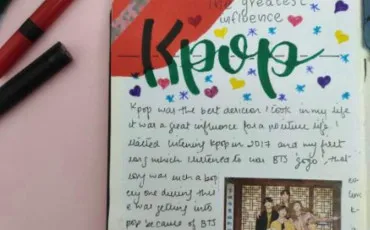 The greatest
influence
Kpop
Kpop was the best decision I took in my life
it was a great influence for a positive life. I
started listening kpop in 2017 and my first
song which I listened to was BTS 'gogo' that
song was such a bop
ery one during that
e was getting into
pop because of BTS